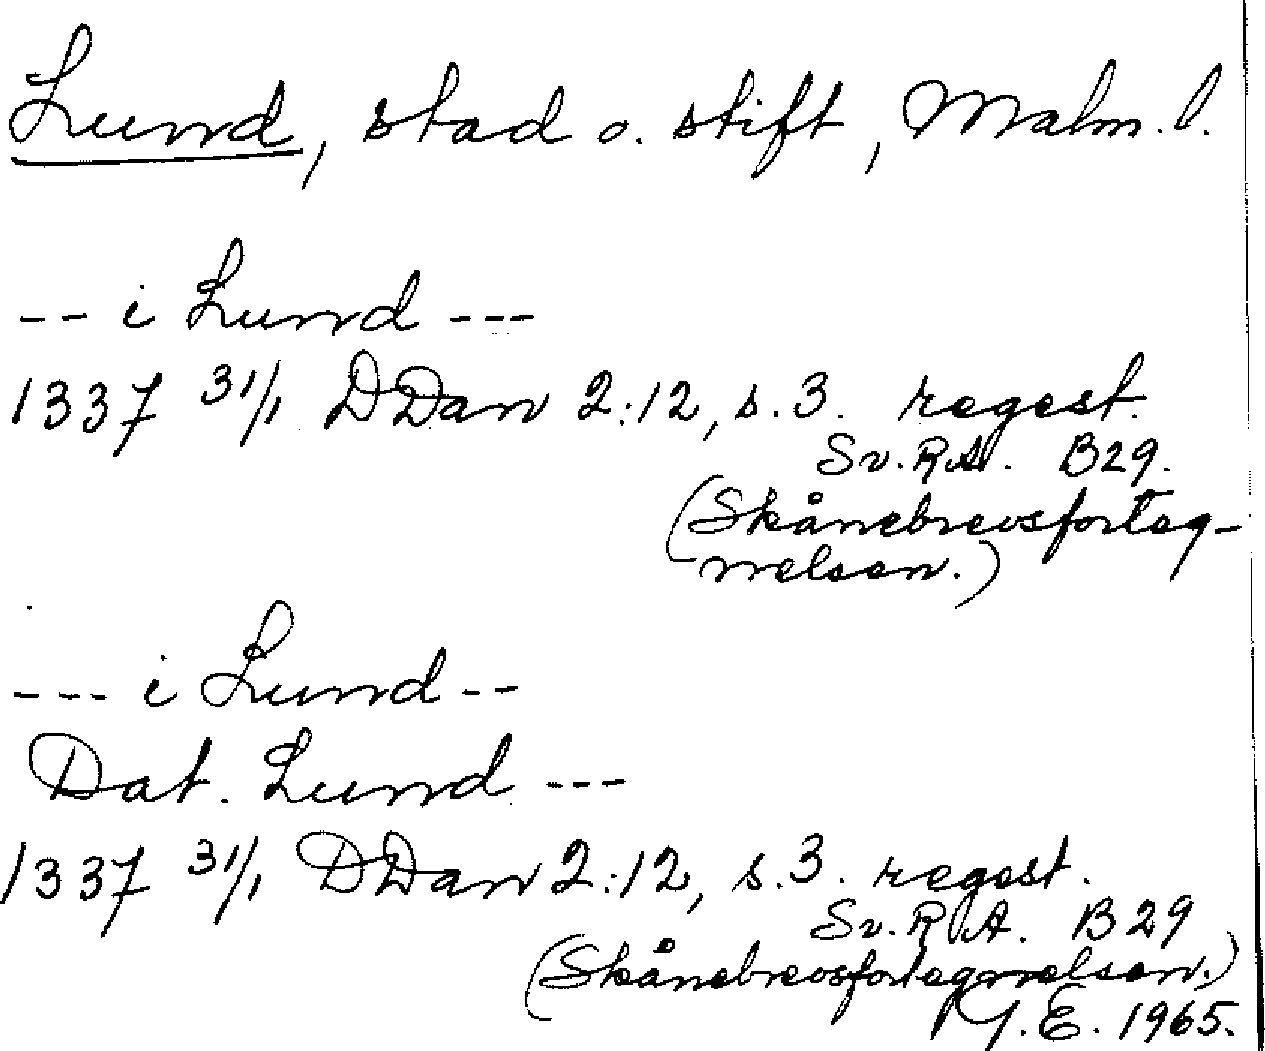 Lund, stad o. stift, Malm. l.
-- i Lund ---
1337 31/1 DDan 2:12, s. 3. regest.
Sv. RA. B29.
(Skånebrevsforteg-
nelsen.)
--- i Lund --
Dat. Lund ---
1337 31/1 DDan 2:12, s. 3. regest.
Sv. R A. B 29
(Skånebrevsfortegnelsen.)
M.E. 1965.